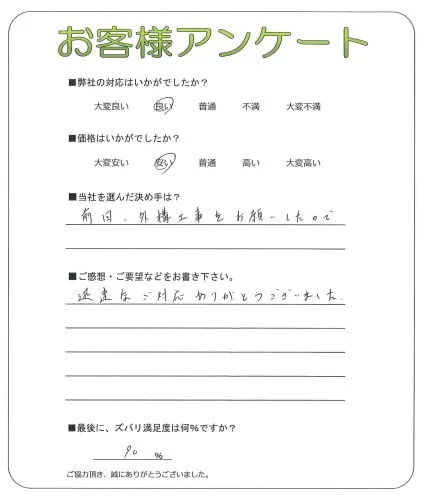 お客様アンケート
■弊社の対応はいかがでしたか？
大変良い 良い 普通 不満 大変不満
■価格はいかがでしたか？
大変安い 安い 普通 高い 大変高い
■当社を選んだ決め手は？
前回、外構工事をお願いしたので
■ご感想・ご要望などをお書き下さい。
迅速なご対応ありがとうございました。
■最後に、ズバリ満足度は何％ですか？
90 ％
ご協力頂き、誠にありがとうございました。